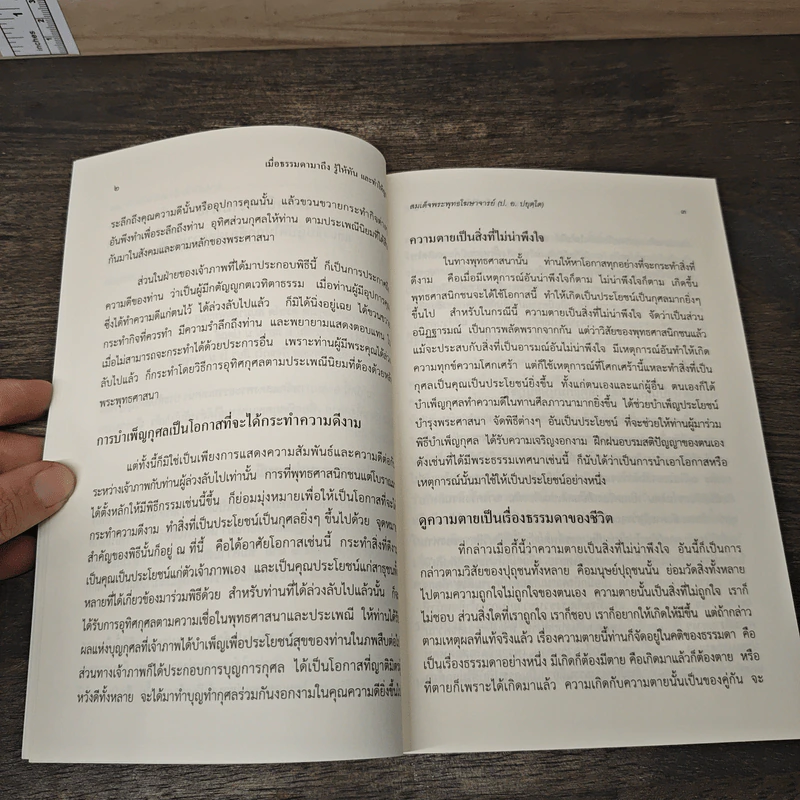 inches
1
๒
เมื่อธรรมดามาถึง รู้ให้ทัน และทำให้ถูก
ระลึกถึงคุณความดีนั้นหรืออุปการคุณนั้น แล้วขวนขวายกระทำกิจต่างๆ
อันพึงทำเพื่อระลึกถึงท่าน อุทิศส่วนกุศลให้ท่าน ตามประเพณีนิยมที่ได้
กันมาในสังคมและตามหลักของพระศาสนา
ส่วนในฝ่ายของเจ้าภาพที่ได้มาประกอบพิธีนี้ ก็เป็นการประกาศ
ความดีของท่าน ว่าเป็นผู้มีกตัญญูกตเวทิตาธรรม เมื่อท่านผู้มีอุปการคุณ
ซึ่งได้ทำความดีแก่ตนไว้ ได้ล่วงลับไปแล้ว ก็มิได้นิ่งอยู่เฉย ได้ขวนขวาย
กระทำกิจที่ควรทำ มีความรำลึกถึงท่าน และพยายามแสดงตอบแทน
เมื่อไม่สามารถจะกระทำได้ด้วยประการอื่น เพราะท่านผู้มีพระคุณได้ล่วง
ลับไปแล้ว ก็กระทำโดยวิธีการอุทิศกุศลตามประเพณีนิยมที่ต้องด้วยหลัก
พระพุทธศาสนา
การบำเพ็ญกุศลเป็นโอกาสที่จะได้กระทำความดีงาม
แต่ทั้งนี้ก็มิใช่เป็นเพียงการแสดงความสัมพันธ์และความดีต่อกัน
ระหว่างเจ้าภาพกับท่านผู้ล่วงลับไปเท่านั้น การที่พุทธศาสนิกชนแต่โบราณ
ได้ตั้งหลักให้มีพิธีกรรมเช่นนี้ขึ้น ก็ย่อมมุ่งหมายเพื่อให้เป็นโอกาสที่จะได้
กระทำความดีงาม ทำสิ่งที่เป็นประโยชน์เป็นกุศลยิ่งๆ ขึ้นไปด้วย จุดหมาย
สำคัญของพิธีนั้นก็อยู่ ณ ที่นี้ คือได้อาศัยโอกาสเช่นนี้ กระทำสิ่งที่ดีงาม
เป็นคุณเป็นประโยชน์แก่ตัวเจ้าภาพเอง และเป็นคุณประโยชน์แก่สาธุชนทั้ง
หลายที่ได้เกี่ยวข้องมาร่วมพิธีด้วย สำหรับท่านที่ได้ล่วงลับไปแล้วนั้น ก็จะ
ได้รับการอุทิศกุศลตามความเชื่อในพุทธศาสนาและประเพณี ให้ท่านได้รับ
ผลแห่งบุญกุศลที่เจ้าภาพได้บำเพ็ญเพื่อประโยชน์สุขของท่านในภพสืบต่อไป
ส่วนทางเจ้าภาพก็ได้ประกอบการบุญการกุศล ได้เป็นโอกาสที่ญาติมิตร
หวังดีทั้งหลาย จะได้มาทำบุญทำกุศลร่วมกันงอกงามในคุณความดียิ่งขึ้นไป
สมเด็จพระพุทธโฆษาจารย์ (ป. อ. ปยุตฺโต)
๓
ความตายเป็นสิ่งที่ไม่น่าพึงใจ
ในทางพุทธศาสนานั้น ท่านให้หาโอกาสทุกอย่างที่จะกระทำสิ่งที่
ดีงาม คือเมื่อมีเหตุการณ์อันน่าพึงใจก็ตาม ไม่น่าพึงใจก็ตาม เกิดขึ้น
พุทธศาสนิกชนจะได้ใช้โอกาสนี้ ทำให้เกิดเป็นประโยชน์เป็นกุศลมากยิ่งๆ
ขึ้นไป สำหรับในกรณีนี้ ความตายเป็นสิ่งที่ไม่น่าพึงใจ จัดว่าเป็นส่วน
อนิฏฐารมณ์ เป็นการพลัดพรากจากกัน แต่ว่าวิสัยของพุทธศาสนิกชนแล้ว
แม้จะประสบกับสิ่งที่เป็นอารมณ์อันไม่น่าพึงใจ มีเหตุการณ์อันทำให้เกิด
ความทุกข์ความโศกเศร้า แต่ก็ใช้เหตุการณ์ที่โศกเศร้านี้แหละทำสิ่งที่เป็น
กุศลเป็นคุณเป็นประโยชน์ยิ่งขึ้น ทั้งแก่ตนเองและแก่ผู้อื่น ตนเองก็ได้
บำเพ็ญกุศลทำความดีในทานศีลภาวนามากยิ่งขึ้น ได้ช่วยบำเพ็ญประโยชน์
บำรุงพระศาสนา จัดพิธีต่างๆ อันเป็นประโยชน์ ที่จะช่วยให้ท่านผู้มาร่วม
พิธีบำเพ็ญกุศล ได้รับความเจริญงอกงาม ฝึกฝนอบรมสติปัญญาของตนเอง
ดังเช่นที่ได้มีพระธรรมเทศนาเช่นนี้ ก็นับได้ว่าเป็นการนำเอาโอกาสหรือ
เหตุการณ์นั้นมาใช้ให้เป็นประโยชน์อย่างหนึ่ง
ดูความตายเป็นเรื่องธรรมดาของชีวิต
ที่กล่าวเมื่อกี้นี้ว่าความตายเป็นสิ่งที่ไม่น่าพึงใจ อันนี้ก็เป็นการ
กล่าวตามวิสัยของปุถุชนทั้งหลาย คือมนุษย์ปุถุชนนั้น ย่อมวัดสิ่งทั้งหลาย
ไปตามความถูกใจไม่ถูกใจของตนเอง ความตายนั้นเป็นสิ่งที่ไม่ถูกใจ เราก็
ไม่ชอบ ส่วนสิ่งใดที่เราถูกใจ เราก็ชอบ เราก็อยากให้เกิดให้มีขึ้น แต่ถ้ากล่าว
ตามเหตุผลที่แท้จริงแล้ว เรื่องความตายนี้ท่านก็จัดอยู่ในคติของธรรมดา คือ
เป็นเรื่องธรรมดาอย่างหนึ่ง มีเกิดก็ต้องมีตาย คือเกิดมาแล้วก็ต้องตาย หรือ
ที่ตายก็เพราะได้เกิดมาแล้ว ความเกิดกับความตายนั้นเป็นของคู่กัน จะ